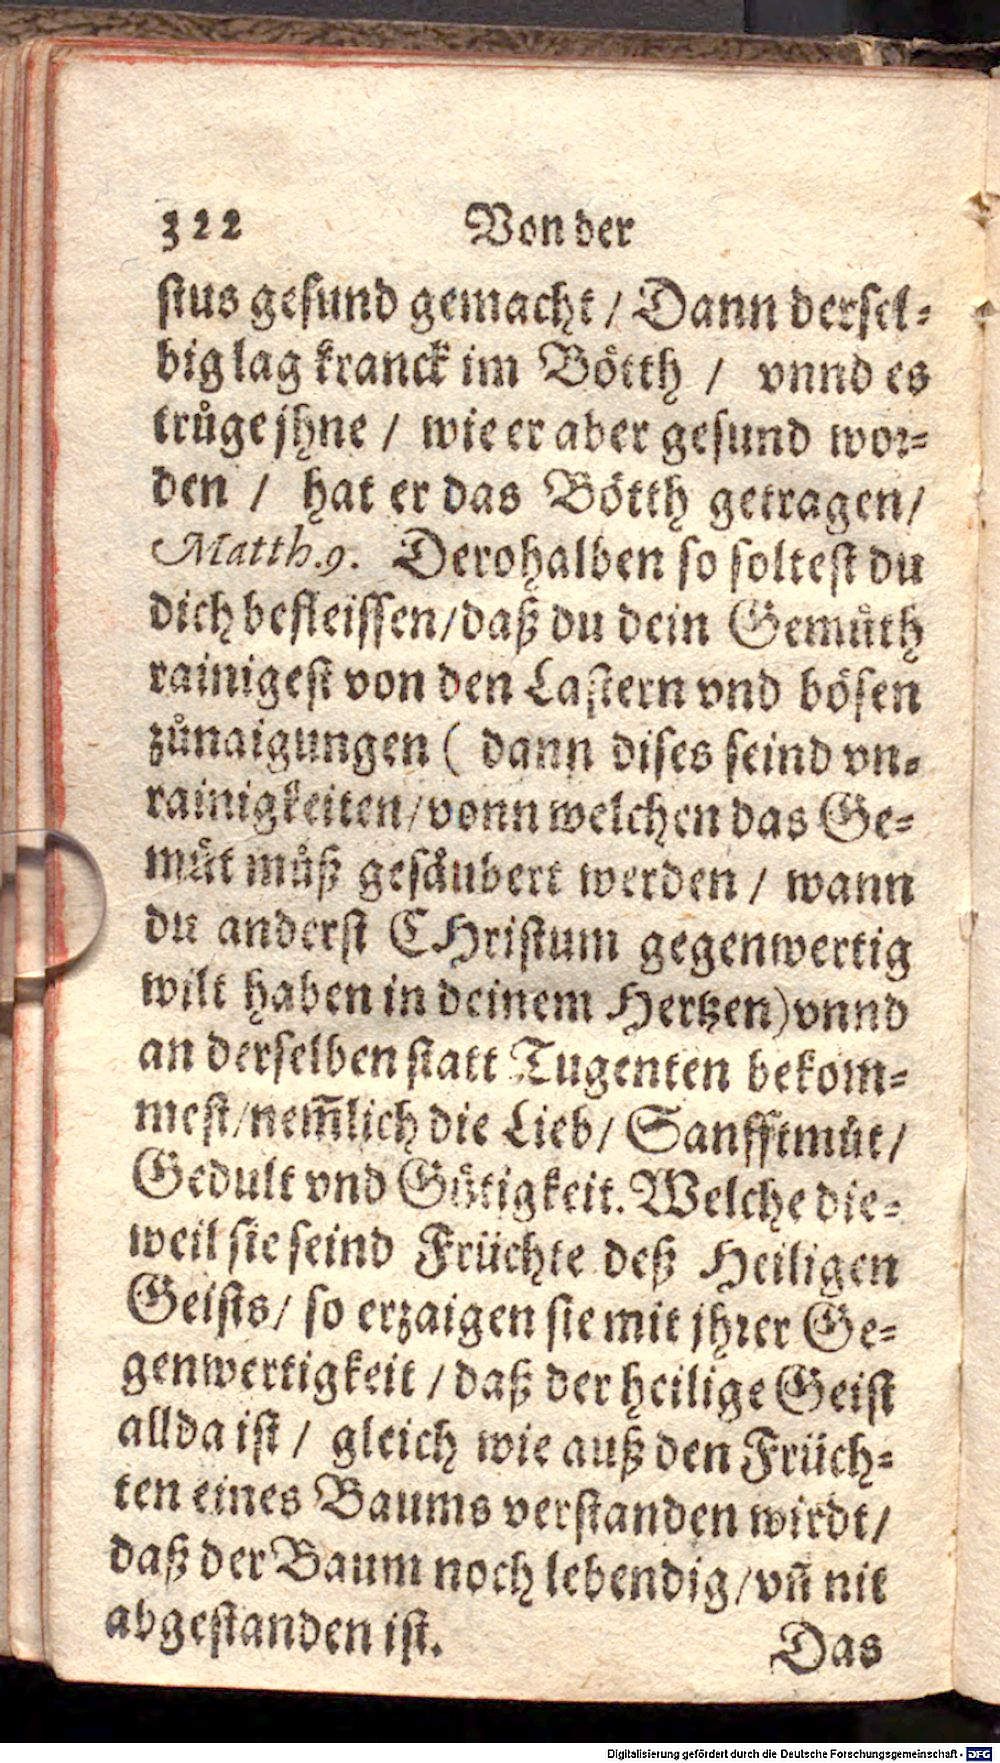 322 Von der
stus gesund gemacht / Dann dersel-
big lag kranck im Bötth / vnnd es
trůge jhne / wie er aber gesund wor-
den / hat er das Bötth getragen/
Matth.9. Derohalben so soltest du
dich befleissen/daß du dein Gemůth
rainigest von den Lastern vnd bösen
zůnaigungen ( dann dises seind vn-
rainigkeiten/vonn welchen das Ge-
můt můß gesäubert werden / wann
du anderst CHristum gegenwertig
wilt haben in deinem Hertzen)vnnd
an derselben statt Tugenten bekom-
mest/nem̃lich die Lieb/ Sanfftmůt/
Gedult vnd Gütigkeit. Welche die-
weil sie seind Früchte deß Heiligen
Geists/ so erzaigen sie mit jhrer Ge-
genwertigkeit / daß der heilige Geist
allda ist / gleich wie auß den Früch-
ten eines Baums verstanden wirdt/
daß der Baum noch lebendig/vñ nit
abgestanden ist.
Das
Digitalisierung gefördert durch die Deutsche Forschungsgemeinschaft - DFG